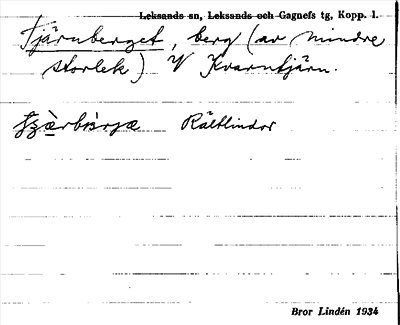 Leksands sn, Leksands och Gagnefs tg, Kopp. l.
Tjärnberget, berg (av mindre
storlek) V Kvarntjärn.
Rältlindor
Bror Lindén 1934